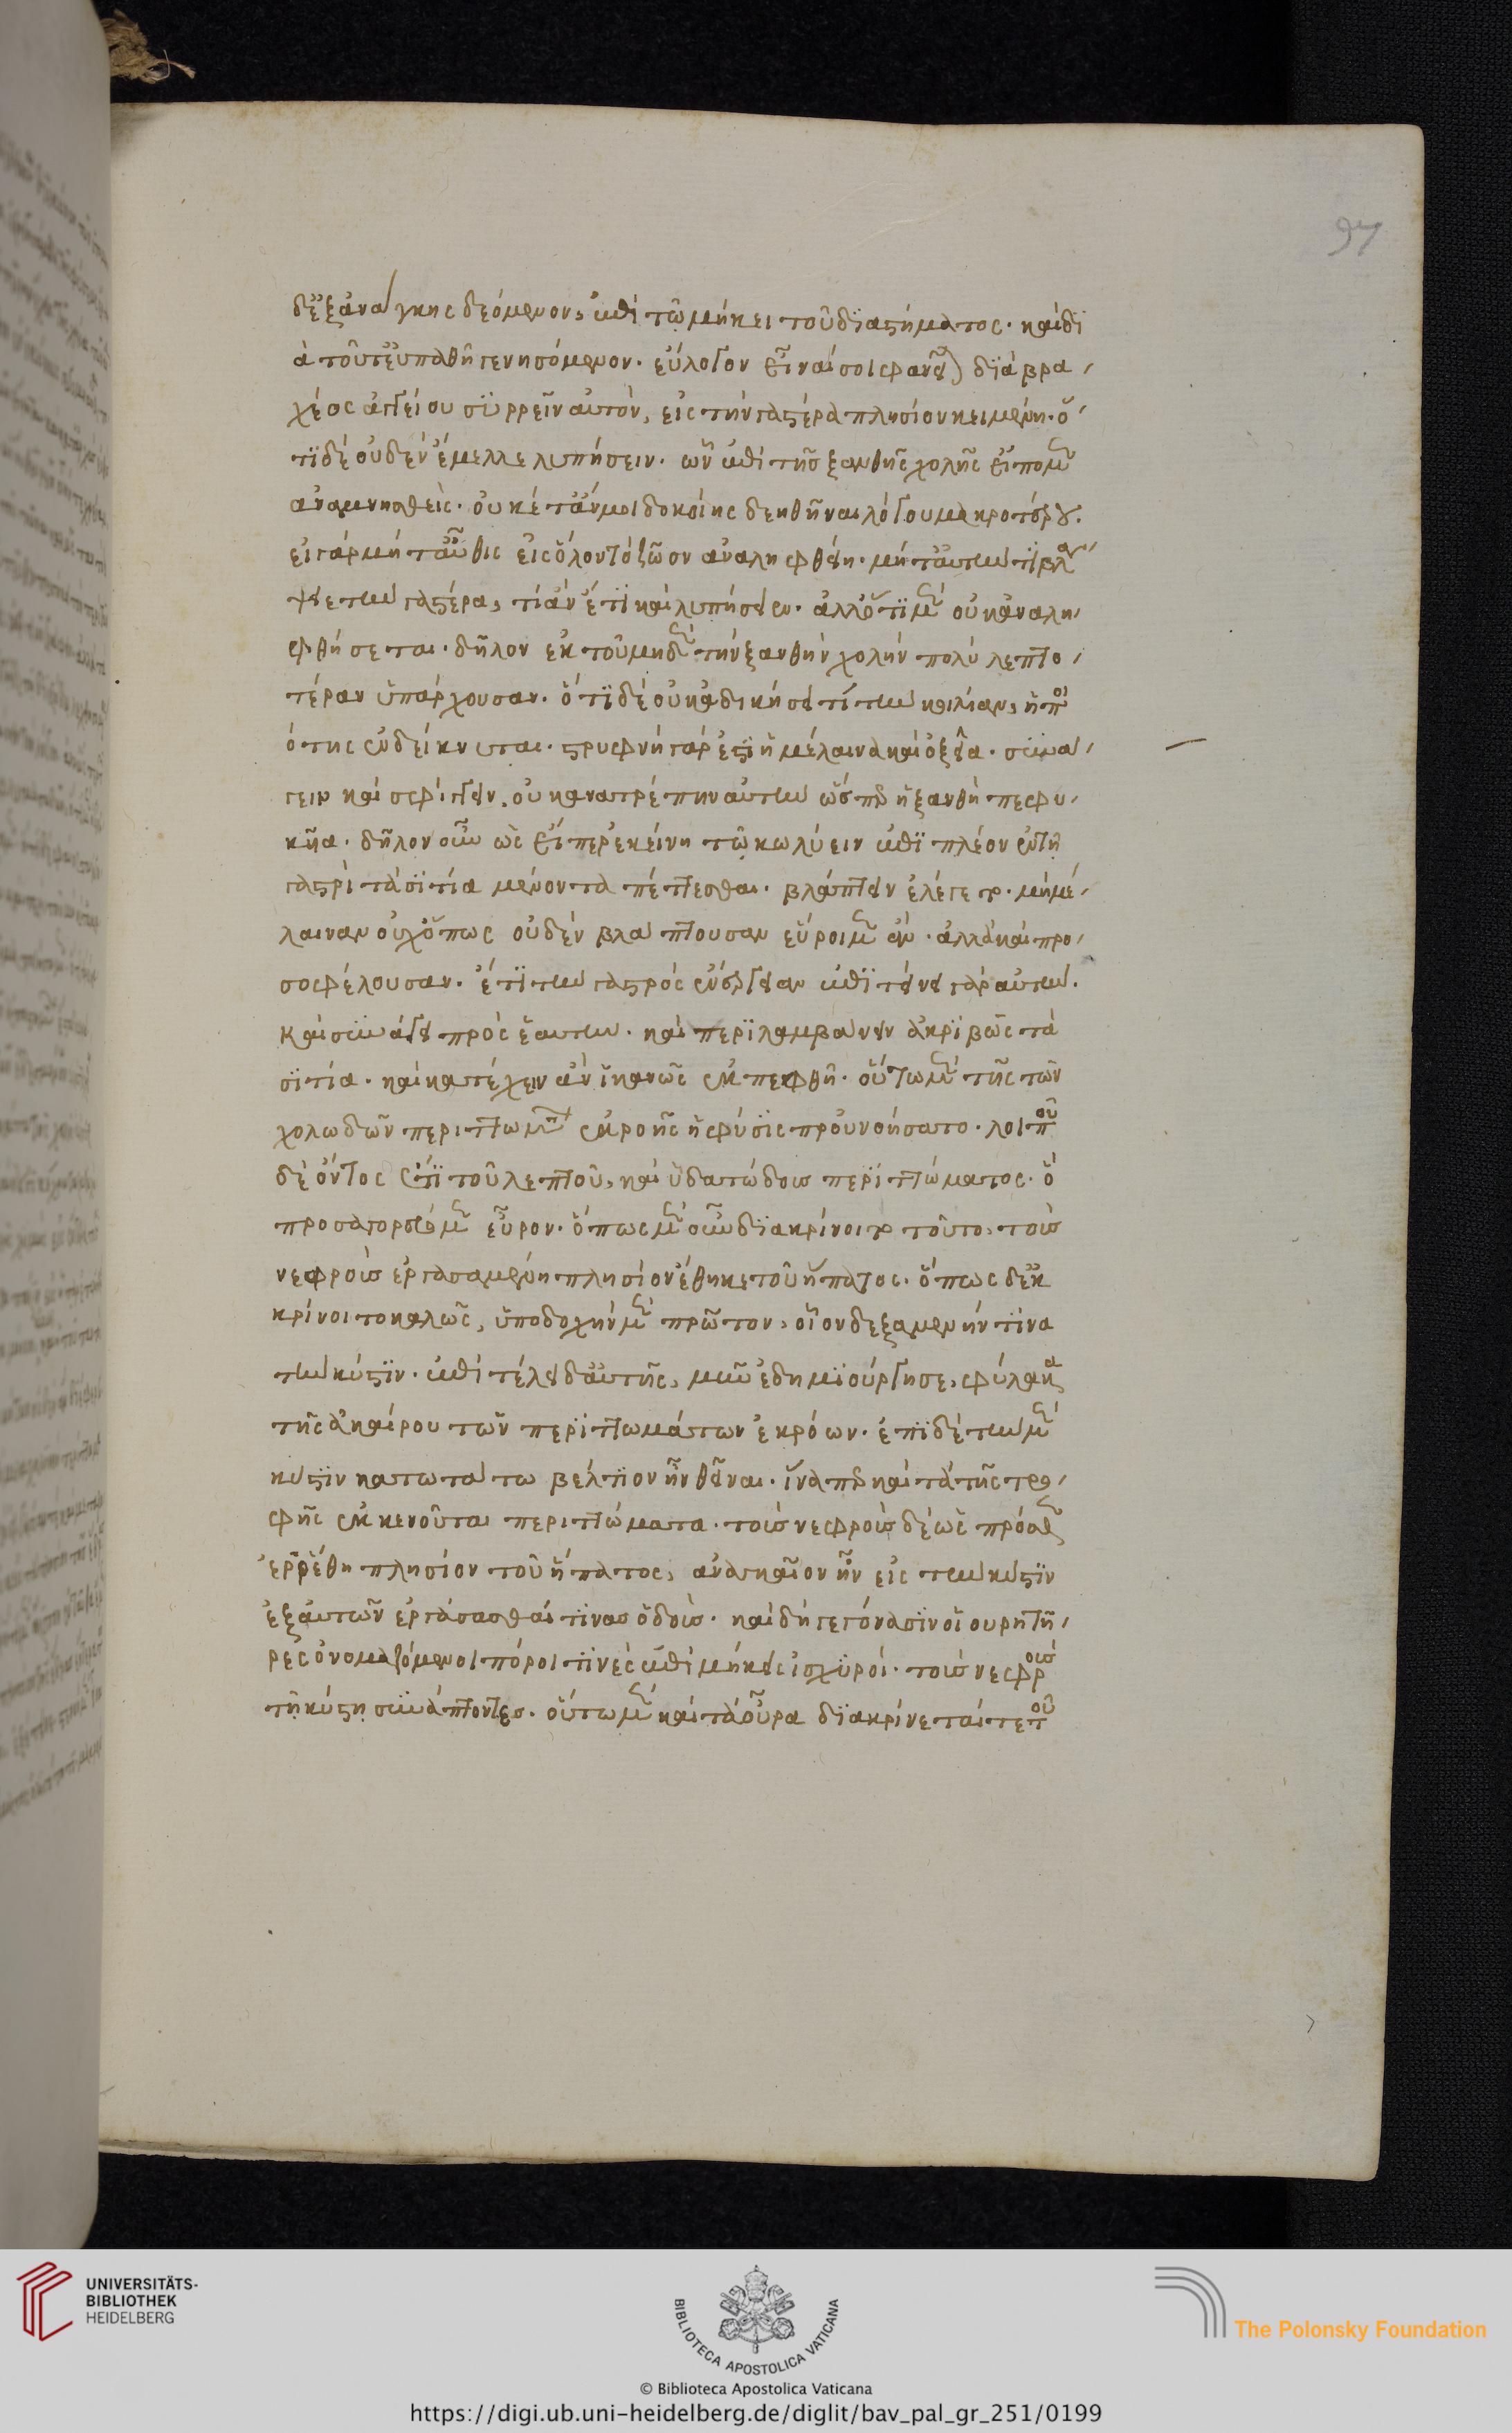 97
δ' ἐξ ἀνάγκης δεόμενον, ἐπὶ τῷ μήκει τοῦ διαστήματος· καὶ δι
ὰ τοῦτ' εὐπαθῆ γενησόμενον· εὔλογον εἶναί σοι φανεῖται διὰ βρα
χέος ἀγγείου συρρεῖν αὐτὸν, εἰς τὴν γαστέρα πλησίον κειμένην· ὅ
τι δὲ οὐδὲν ἔμελλε λυπήσειν· ὧν ἐπὶ τῆς ξανθῆς χολῆς εἴπομεν
ἀναμνησθεὶς· οὐκέτ' ἄν μοι δοκοίης δεηθῆναι λόγου μακροτέρου·
εἰ γὰρ μήτ' αὖθις εἰς ὅλον τὸ ζῶον ἀναληφθείη· μήτ' αὐτὴν τι βλά
ψει τὴν γαστέρα, τί ἂν ἔτι καὶ λυπήσειεν· ἀλλ' ὅτι μὲν οὐκ ἀναλη
φθήσεται· δῆλον ἐκ τοῦ μηδὲ τὴν ξανθὴν χολὴν πολὺ λεπτο
τέραν ὑπάρχουσαν· ὅτι δὲ οὐκ ἀδικήσει τί τὴν κοιλίαν, ἡ ποι
ότης ἐνδείκνυται· στρυφνὴ γάρ ἐστι ἡ μέλαινα καὶ ὀξεῖα· συνά
γειν καὶ σφίγγειν· οὐκ ἀνατρέπειν αὐτὴν ὥσπερ ἡ ξανθὴ πεφυ
κῆα· δῆλον οὖν ὡς εἴπερ ἐκείνη τῷ κωλύειν ἐπὶ πλέον ἐν τῇ
γαστρὶ τὰ σιτία μένοντα πέττεσθαι· βλάπτειν ἐλέγετο· μὴ μέ
λαιναν οὐχ ὅπως οὐδὲν βλάπτουσαν εὕροιμεν ἂν· ἀλλὰ καὶ προ
σοφέλουσαν· ἔτι τὴν γαστρὸς ἐνέργειαν ἐπιτείνει γὰρ αὐτὴν·
καὶ συνάγει πρὸς ἑαυτὴν· καὶ περιλαμβάνειν ἀκριβῶς τὰ
σιτία· καὶ κατέχειν ἂν ἱκανῶς ἐκπεφθῆ· οὕτω μὲν τῆς τῶν
χολωδῶν περιττωμάτων ἐκροῆς ἡ φύσις προὐνοήσατο· λοιποῦ
δὲ ὄντος ἔτι τοῦ λεπτοῦ, καὶ ὑδατώδους περιττώματος· ὃ
προσαγορεύομεν οὖρον· ὅπως μὲν οὖν διακρίνοιτο τοῦτο, τοὺς
νεφροὺς ἐργασαμένη πλησίον ἔθηκε τοῦ ἥπατος· ὅπως δ' ἐκ
κρίνοιτο καλῶς, ὑποδοχὴν μὲν πρῶτον, οἷον δεξαμενήν τινα
τὴν κύστιν· ἐπὶ τέλει δ' αὐτῆς, μῦν ἐδημιούργησε, φύλακα
τῆς ἀκαίρου τῶν περιττωμάτων ἐκρόων· ἐπὶ δὲ τὴν μὲν
κύστιν κατωτάτω βέλτιον ἦν θεῖναι· ἵνα περ καὶ τὰ τῆς τρο
φῆς ἐκκενοῦται περιττώματα· τοὺς νεφροὺς δὲ ὡς πρόσθεν
ἐρρέθη πλησίον τοῦ ἥπατος, ἀναγκαῖον ἦν εἰς τὴν κύστιν
ἐξ αὐτῶν ἐργάσασθαί τινας ὁδοὺς· καὶ δὴ γεγόνασιν οἱ οὐρητῆ
ρες ὀνομαζόμενοι πόροι τινὲς ἐπιμήκεις ἰσχυροί· τοὺς νεφροὺς
τῇ κύστῃ συνάπτοντες· οὕτω μὲν καὶ τὰ οὖρα διακρίνεταί τε τοῦ
UNIVERSITÄTS-
BIBLIOTHEK
HEIDELBERG
BIBLIOTECA APOSTOLICA VATICANA
The Polonsky Foundation
© Biblioteca Apostolica Vaticana
https://digi.ub.uni-heidelberg.de/diglit/bav_pal_gr_251/0199